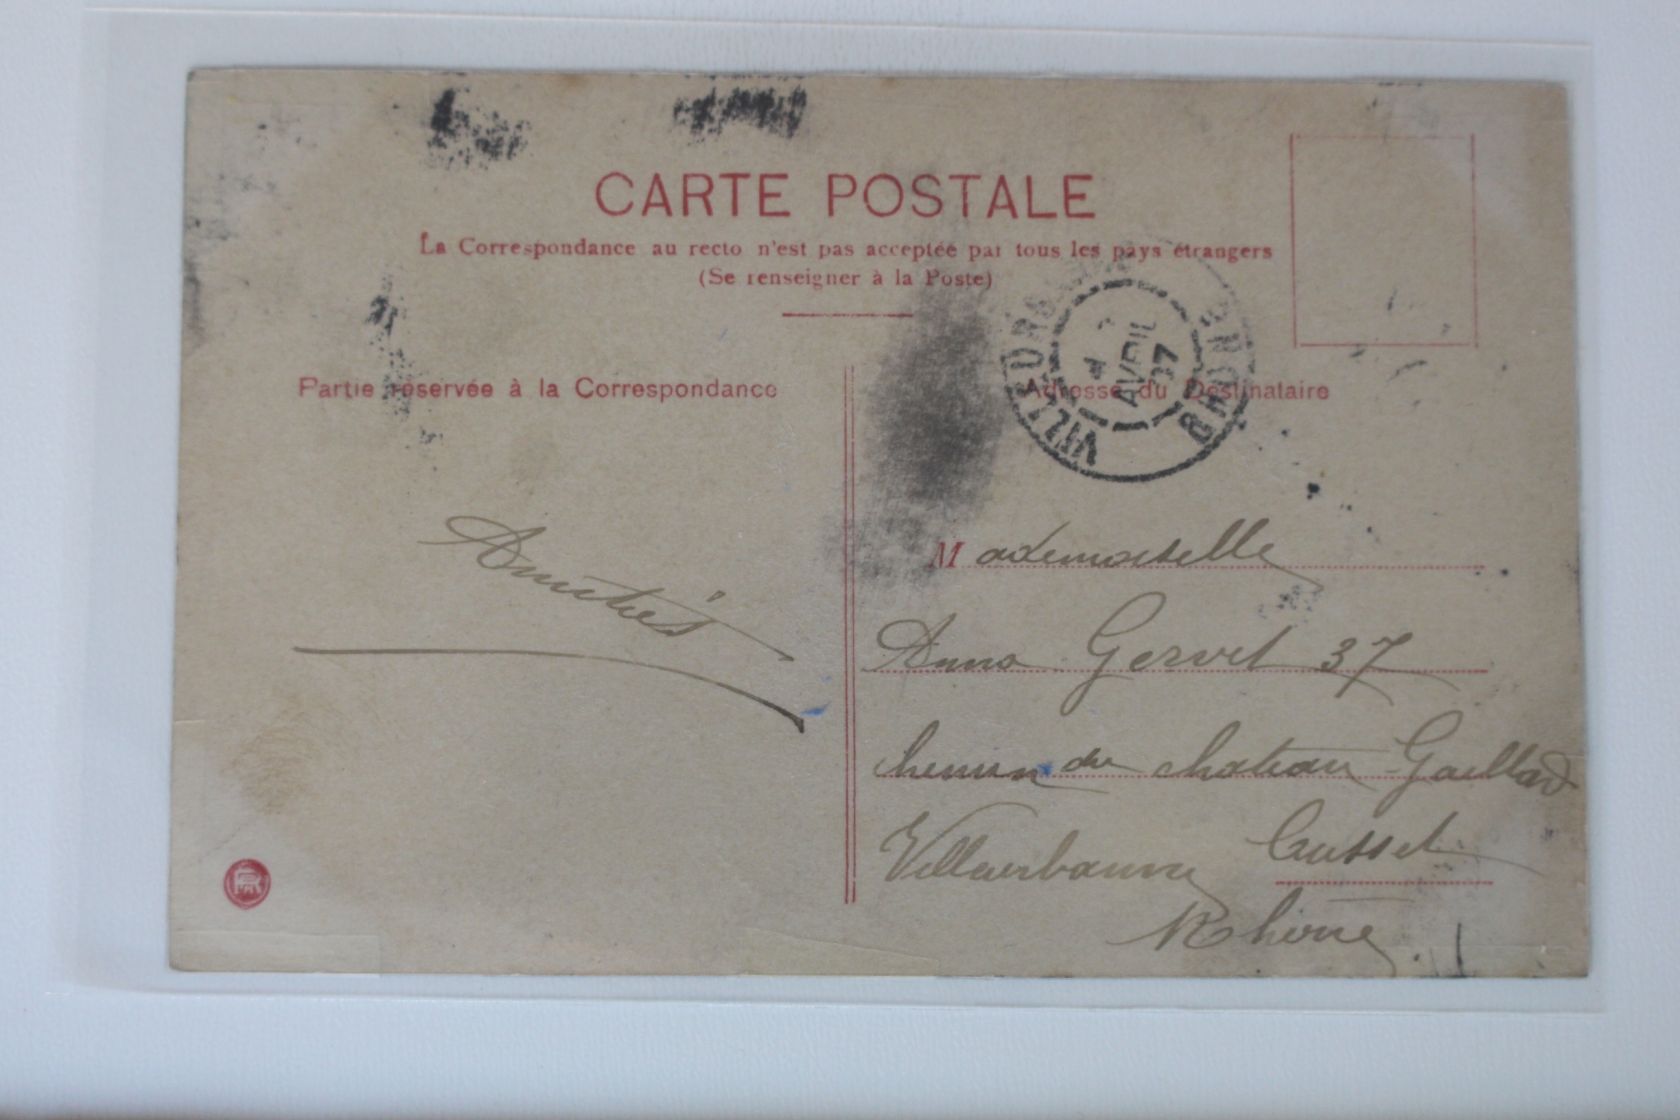 CARTE POSTALE
La Correspondance au recto n'est pas acceptée par tous les pays étrangers
(Se renseigner à la Poste)
Partie réservée à la Correspondance
Adresse du Destinataire
AVRIL
07
RHONE
Amitiés
Mademoiselle
Anna Gervet 37
chemin du chateau Gaillard
Villeurbanne Cusset
Rhône